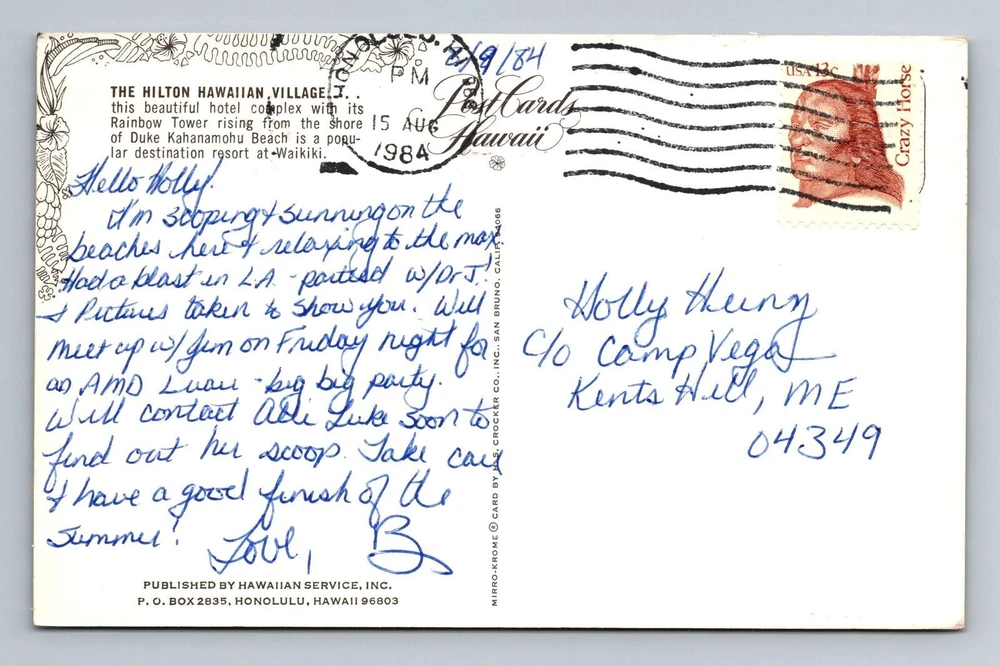 HONOLULU, HI
PM
15 AUG
1984
8/9/84
Post Cards
Hawaii
USA 13c
Crazy Horse
THE HILTON HAWAIIAN VILLAGE....
this beautiful hotel complex with its
Rainbow Tower rising from the shore
of Duke Kahanamohu Beach is a popu-
lar destination resort at Waikiki.
Hello Holly!
I'm scoping & sunning on the
beaches here & relaxing to the max.
Had a blast in L.A. - partied w/Dr J!
& Pictures taken to show you. Will
meet up w/ Jim on Friday night for
an AMD Luau - big big party.
Will contact Luke soon to
find out her scoop. Take care
& have a good finish of the
summer!
Love, B
PUBLISHED BY HAWAIIAN SERVICE, INC.
P. O. BOX 2835, HONOLULU, HAWAII 96803
MIRRO-KROME ® CARD BY H.S. CROCKER CO., INC., SAN BRUNO, CALIF. 94066
Holly
c/o Camp Vega
Kents Hill, ME
04349